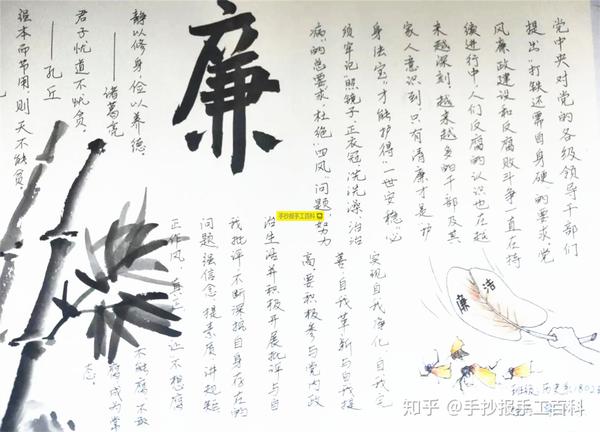 党中央对党的各级领导干部们
提出"打铁还需自身硬"的要求,党
风廉政建设和反腐败斗争一直在持
续进行中,人们反腐的认识也在越
来越深刻,越来越多的干部及其
家人意识到,只有清廉才是"护
身法宝",才能护得"一世安稳"。必
须牢记"照镜子、正衣冠、洗洗澡、治治
病"的总要求,杜绝"四风"问题,努力
实现自我净化、自我完
善、自我革新与自我提
高,要积极参与党内政
治生活并积极开展批评与自
我批评,不断深挖自身存在的
问题,强信念、提素质、讲规矩
正作风,真正让不想腐
不能腐、不敢
腐成为常
态。
廉
静以修身,俭以养德。
——诸葛亮
君子忧道不忧贫。
——孔丘
强本而节用,则天不能贫。
廉洁
班级:历史系1802
手抄报手工百科
知乎 @手抄报手工百科